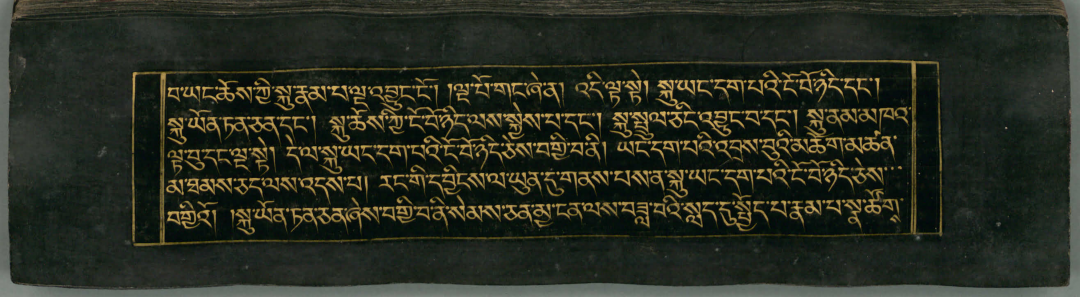 བ་ཡང་ཆོས་ཀྱི་སྐུ་རྣམ་པ་ལྔ་འབྱུང་ངོ༌། །ལྔ་པོ་གང་ཞེ་ན། འདི་ལྟ་སྟེ། སྐུ་ཡང་དག་པའི་ངོ་བོ་ཉིད་དང་།
སྐུ་ཡོན་ཏན་ཅན་དང་། སྐུ་ཆོས་ཀྱི་ངོ་བོ་ཉིད་ལས་སྐྱེས་པ་དང་། སྐུ་སྤྲུལ་ཅིང་འབྱུང་བ་དང་། སྐུ་ནམ་མཁའ་
ལྟ་བུ་དང་ལྔ་སྟེ། དེ་ལ་སྐུ་ཡང་དག་པའི་ངོ་བོ་ཉིད་ཅེས་བགྱི་བ་ནི། ཡང་དག་པའི་འབྲས་བུའི་མཆོག་མཚན་
མ་ཐམས་ཅད་ལས་འདས་པ། རང་གི་དབྱིངས་ལ་ཡུན་དུ་གནས་པས་ན་སྐུ་ཡང་དག་པའི་ངོ་བོ་ཉིད་ཅེས་
བགྱིའོ། །སྐུ་ཡོན་ཏན་ཅན་ཞེས་བགྱི་བ་ནི་སེམས་ཅན་མྱ་ངན་ལས་བཟླ་བའི་སླད་དུ་སྤྱོད་པ་རྣམ་པ་སྣ་ཚོགས་